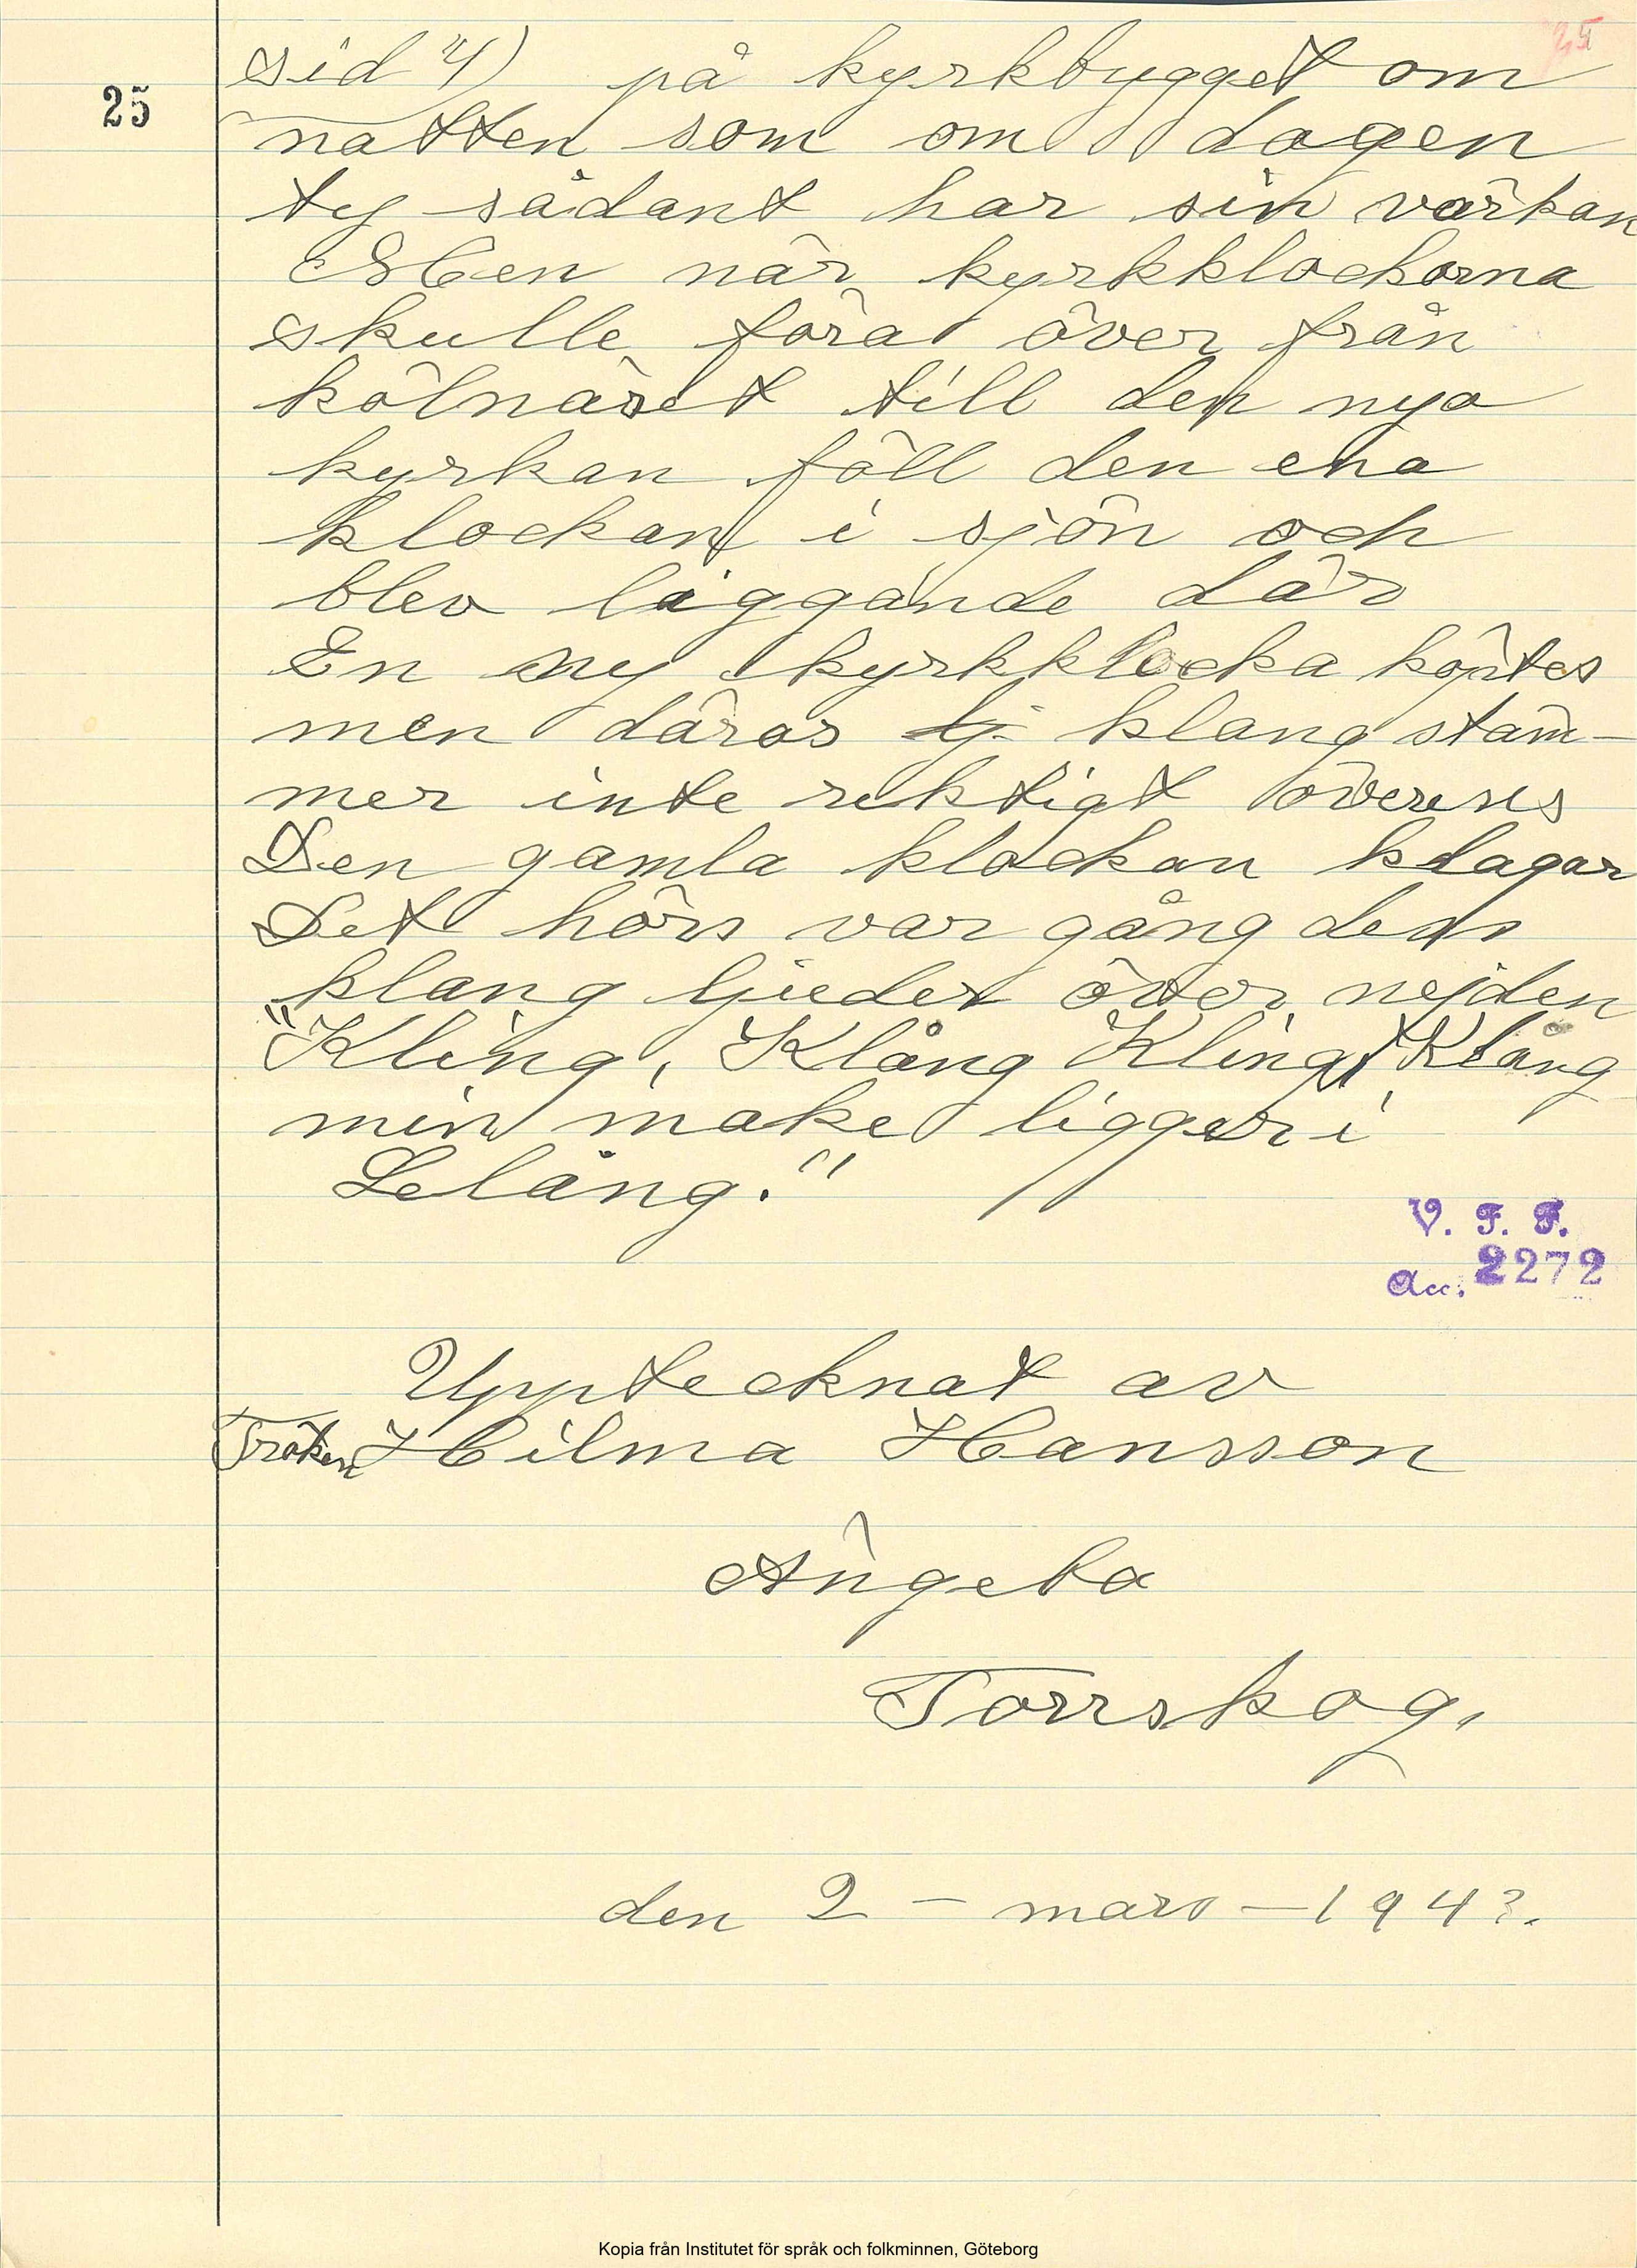 25
25
sid 4) på kyrkbygget om
natten som om dagen
ty sådant har sin värkan
Men när kyrkklockorna
skulle föra över från
kölnäset till den nya
kyrkan föll den ena
klockan i sjön och
blev liggande där
En ny kyrkklocka köptes
men däras lj klang stäm-
mer inte riktigt överens
Den gamla klockan klagar
Det hörs var gång dess
klang ljuder över nejden
"Kling, Klång Kling, Klång
min make ligger i
Lelång."
V. F. F.
Acc. 2272
Upptecknat av
Fröken Hilma Hansson
Ängebo
Torrskog.
den 2 – mars – 1943.
Kopia från Institutet för språk och folkminnen, Göteborg